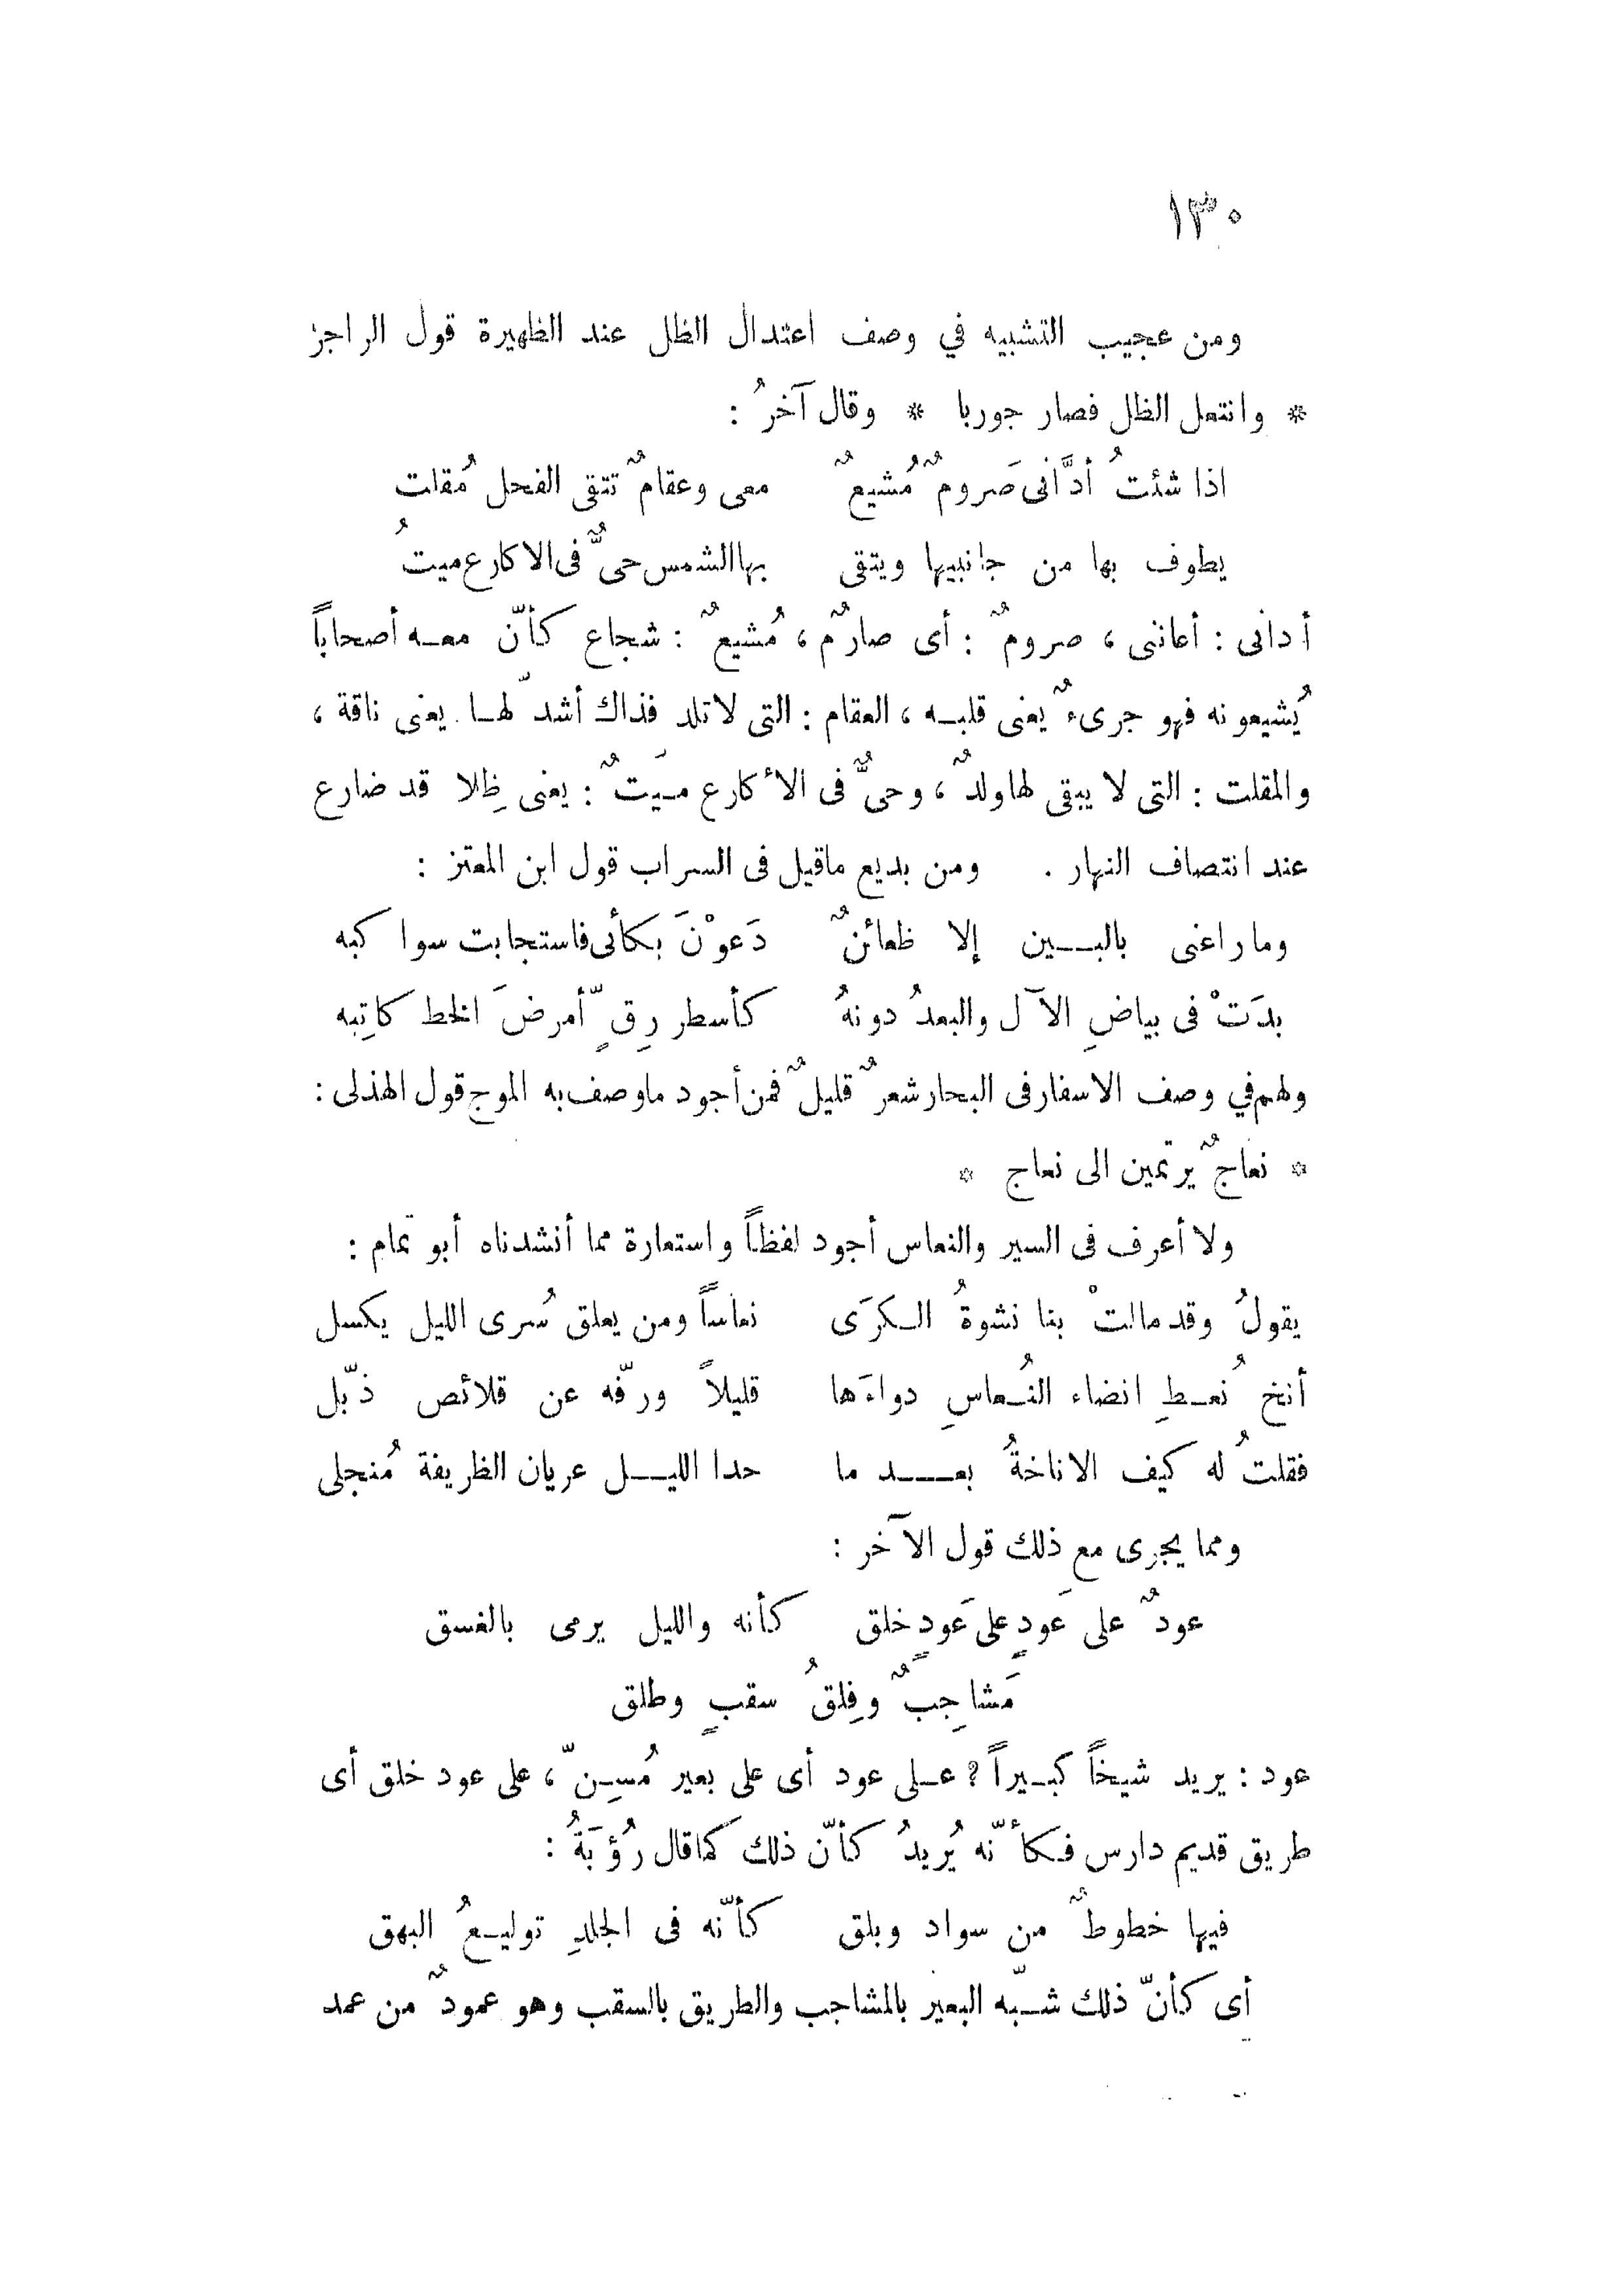 ١٣٠
ومن عجيب التشبيه في وصف اعتدال الظل عند الظهيرة قول الراجز
* وانتعل الظل فصار جوربا * وقال آخرُ :
اذا شئتُ أدَّانى صَرومٌ مُشيعٌ معى وعقامٌ تتقى الفحل مُقلت
يطوف بها من جانبيها ويتقى بها الشمس حىٌّ فى الاكارع ميتُ
أدانى : أعاننى ، صرومٌ : أى صارمٌ ، مُشيعٌ : شجاع كأنّ معه أصحاباً
يُشيعونه فهو جرىءٌ يعنى قلبه ، العقام : التى لا تلد فذاك أشدّ لها يعنى ناقة ،
والمقلت : التى لا يبقى لها ولدٌ ، وحىٌّ فى الأكارع ميَتٌ : يعنى ظِلا قد ضارع
عند انتصاف النهار . ومن بديع ماقيل فى السراب قول ابن المعتز :
وما راعنى بالبين إلا ظعائنٌ دَعوْنَ بكائى فاستجابت سوا كبه
بدَتْ فى بياضِ الآل والبعدُ دونهُ كأسطر رِقٍّ أمرضَ الخط كاتِبه
ولهم في وصف الاسفار فى البحار شعرٌ قليلٌ فمن أجود ماوصف به الموج قول الهذلى :
* نعاجٌ يرتمين الى نعاج *
ولا أعرف فى السير والنعاس أجود لفظاً واستعارة مما أنشدناه أبو تمام :
يقولُ وقد مالتْ بنا نشوةُ الكرَى نعاساً ومن يعلق سُرى الليل يكسل
أنخ نُعطِ انضاء النُعاسِ دواءَها قليلاً ورفّه عن قلائص ذبّل
فقلتُ له كيف الاناخةُ بعد ما حدا الليل عريان الظريفة مُنجلى
ومما يجرى مع ذلك قول الآخر :
عودٌ على عَودٍ على عَودٍ خلق كأنه والليل يرمى بالغسق
مَشاجِبٌ وفِلقُ سقبٍ وطلق
عود : يريد شيخاً كبيراً ? على عود أى على بعير مُسِنّ ، على عود خلق أى
طريق قديم دارس فكأنّه يُريدُ كأنّ ذلك كما قال رُؤبَةُ :
فيها خطوطٌ من سواد وبلق كأنّه فى الجلدِ توليعُ البهق
أى كأنّ ذلك شبّه البعير بالمشاجب والطريق بالسقب وهو عمودٌ من عمد